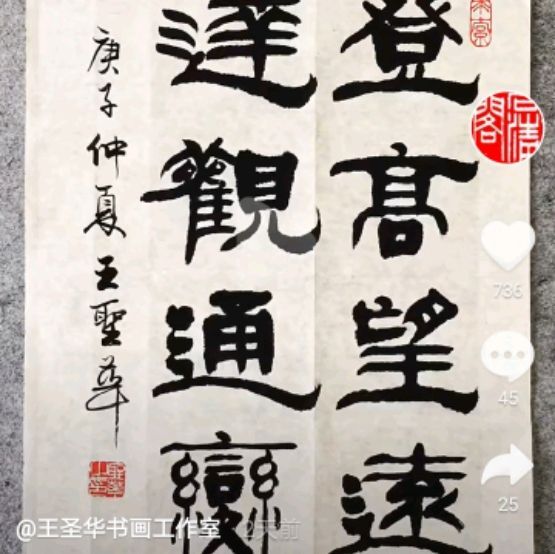 登高望遠
達觀通變
庚子仲夏王聖華
736
45
25
@王圣华书画工作室 2天前